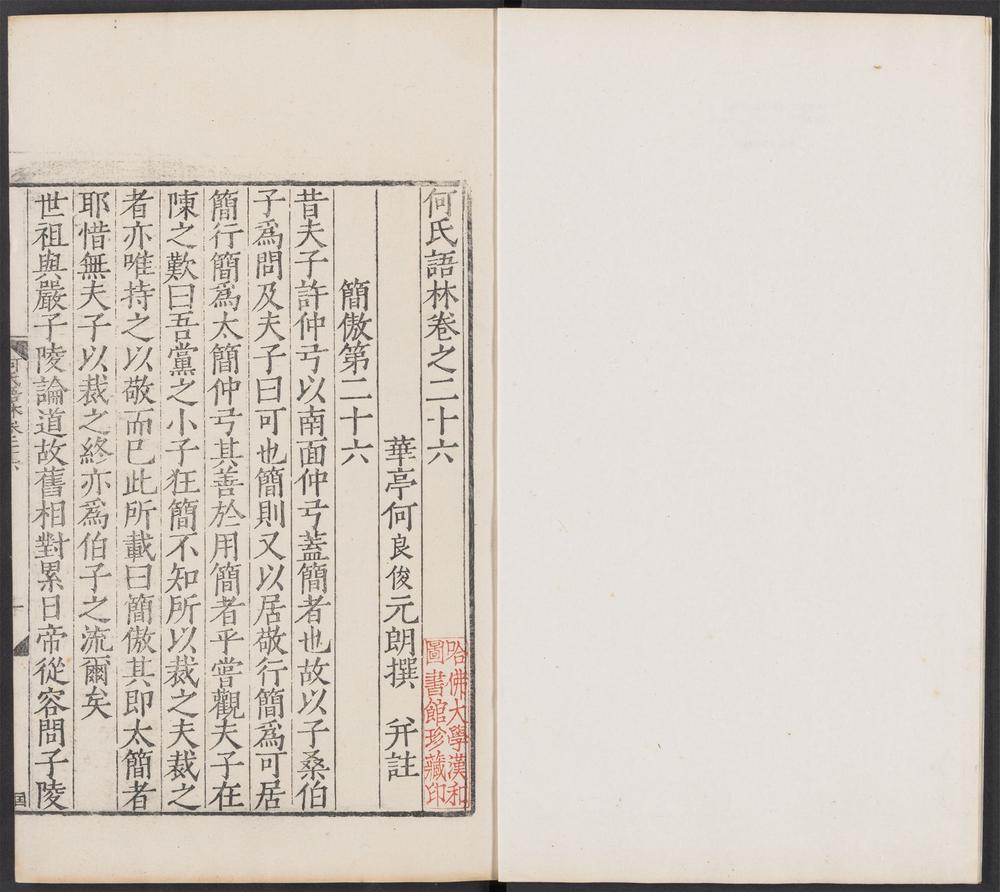 何氏語林卷之二十六
華亭何良俊元朗撰并註
簡傲第二十六
昔夫子許仲弓以南面仲弓蓋簡者也故以子桑伯
子為問及夫子曰可也簡則又以居敬行簡為可居
簡行簡為太簡仲弓其善於用簡者乎嘗觀夫子在
陳之歎曰吾黨之小子狂簡不知所以裁之夫裁之
者亦唯持之以敬而已此所載曰簡傲其即太簡者
耶惜無夫子以裁之終亦為伯子之流爾矣
世祖與嚴子陵論道故舊相對累日帝從容問子陵
哈佛大學漢和
圖書館珍藏印